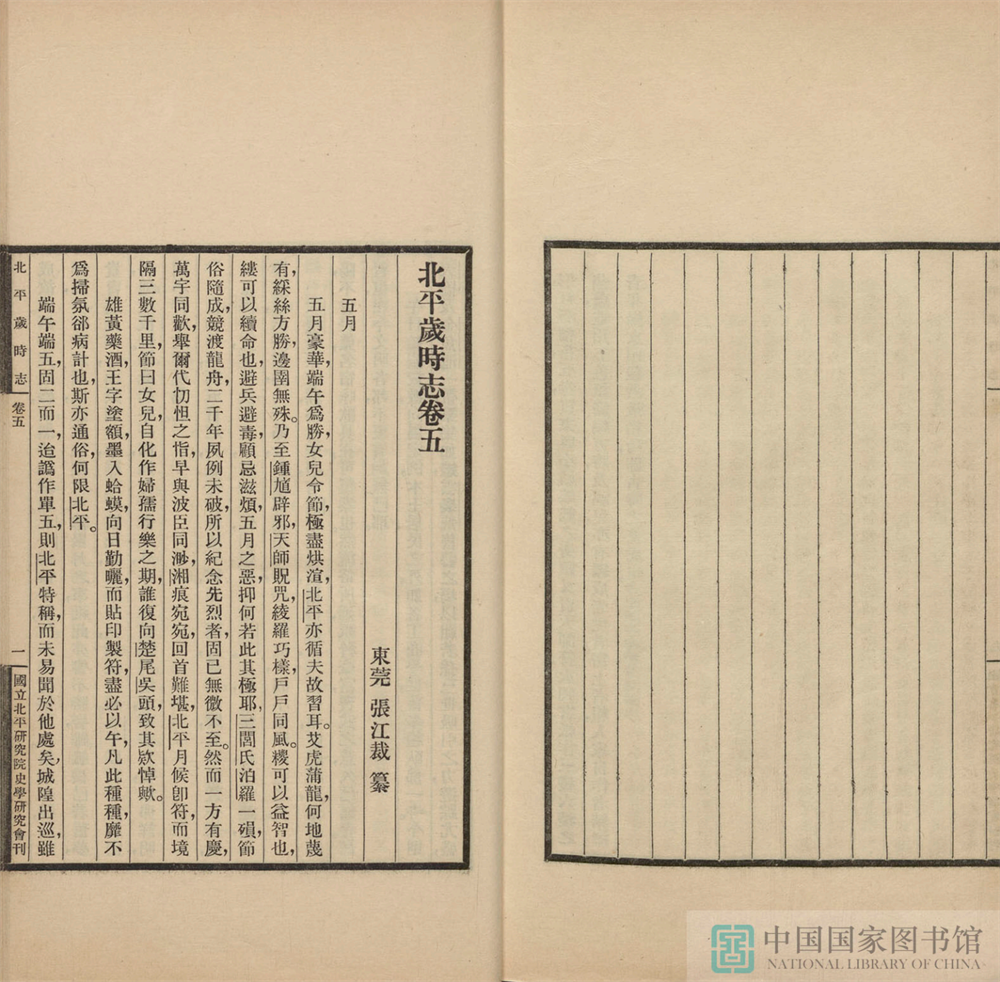 北平歲時志卷五
東莞 張江裁 纂
五月
五月豪華,端午爲勝,女兒令節,極盡烘渲,北平亦循夫故習耳。艾虎蒲龍,何地蔑
有,綵絲方勝,邊圉無殊。乃至鍾馗辟邪,天師貺咒,綾羅巧樣,戶戶同風。糉可以益智也,
縷可以續命也,避兵避毒,顧忌滋煩,五月之惡,抑何若此其極耶,三閭氏泊羅一殞,節
俗隨成,競渡龍舟,二千年夙例未破,所以紀念先烈者,固已無微不至。然而一方有慶,
萬宇同歡,舉爾代忉怛之指,早與波臣同渺,湘痕宛宛,回首難堪,北平月候卽符,而境
隔三數千里,節曰女兒,自化作婦孺行樂之期,誰復向楚尾吳頭,致其欵悼歟。
雄黃藥酒,王字塗額,墨入蛤蟆,向日勤曬,而貼印製符,盡必以午,凡此種種,靡不
爲掃氛郤病計也,斯亦通俗,何限北平。
端午端五,固二而一,迨譌作單五,則北平特稱,而未易聞於他處矣,城隍出巡,雖
北平歲時志 卷五 一 國立北平研究院史學研究會刊
中国国家图书馆
NATIONAL LIBRARY OF CHINA